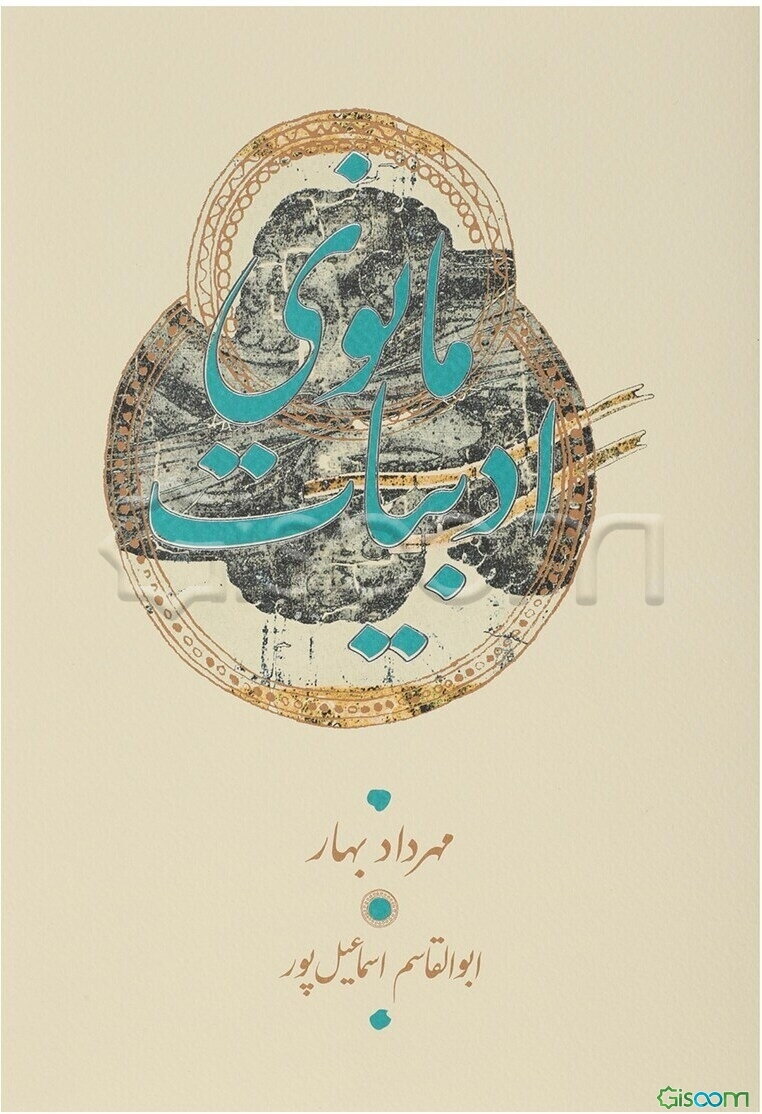 ادبیات
مانوی
مهرداد بهار
ابوالقاسم اسماعیل‌پور
Gisoom
Gisoom